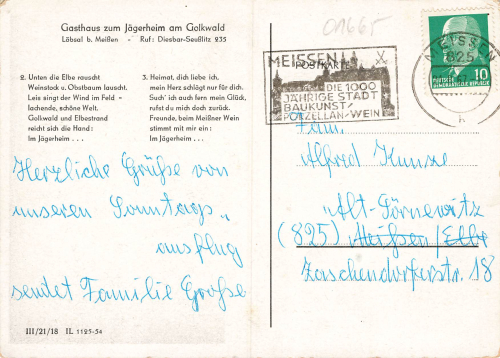 Gasthaus zum Jägerheim am Golkwald
Löbsal b. Meißen - Ruf: Diesbar-Seußlitz 235
2. Unten die Elbe rauscht
Weinstock u. Obstbaum lauscht.
Leis singt der Wind im Feld -
lachende, schöne Welt.
Golkwald und Elbestrand
reicht sich die Hand:
Im Jägerheim . . .
3. Heimat, dich liebe ich,
mein Herz schlägt nur für dich.
Such' ich auch fern mein Glück,
rufst du mich doch zurück.
Freunde, beim Meißner Wein
stimmt mit mir ein:
Im Jägerheim . . .
Herzliche Grüße von
unseren Sonntags-
ausflug
sendet Familie Große
III/21/18 IL 1125-54
01665
POSTKARTE
MEISSEN
DIE 1000
JÄHRIGE STADT
BAUKUNST
PORZELLAN-WEIN
MEISSEN
825
h
10
DEUTSCHE
DEMOKRATISCHE REPUBLIK
Fam.
Alfred Kunze
"Alt-Görnewitz
(825) Meißen/Elbe
Zaschendorferstr. 18